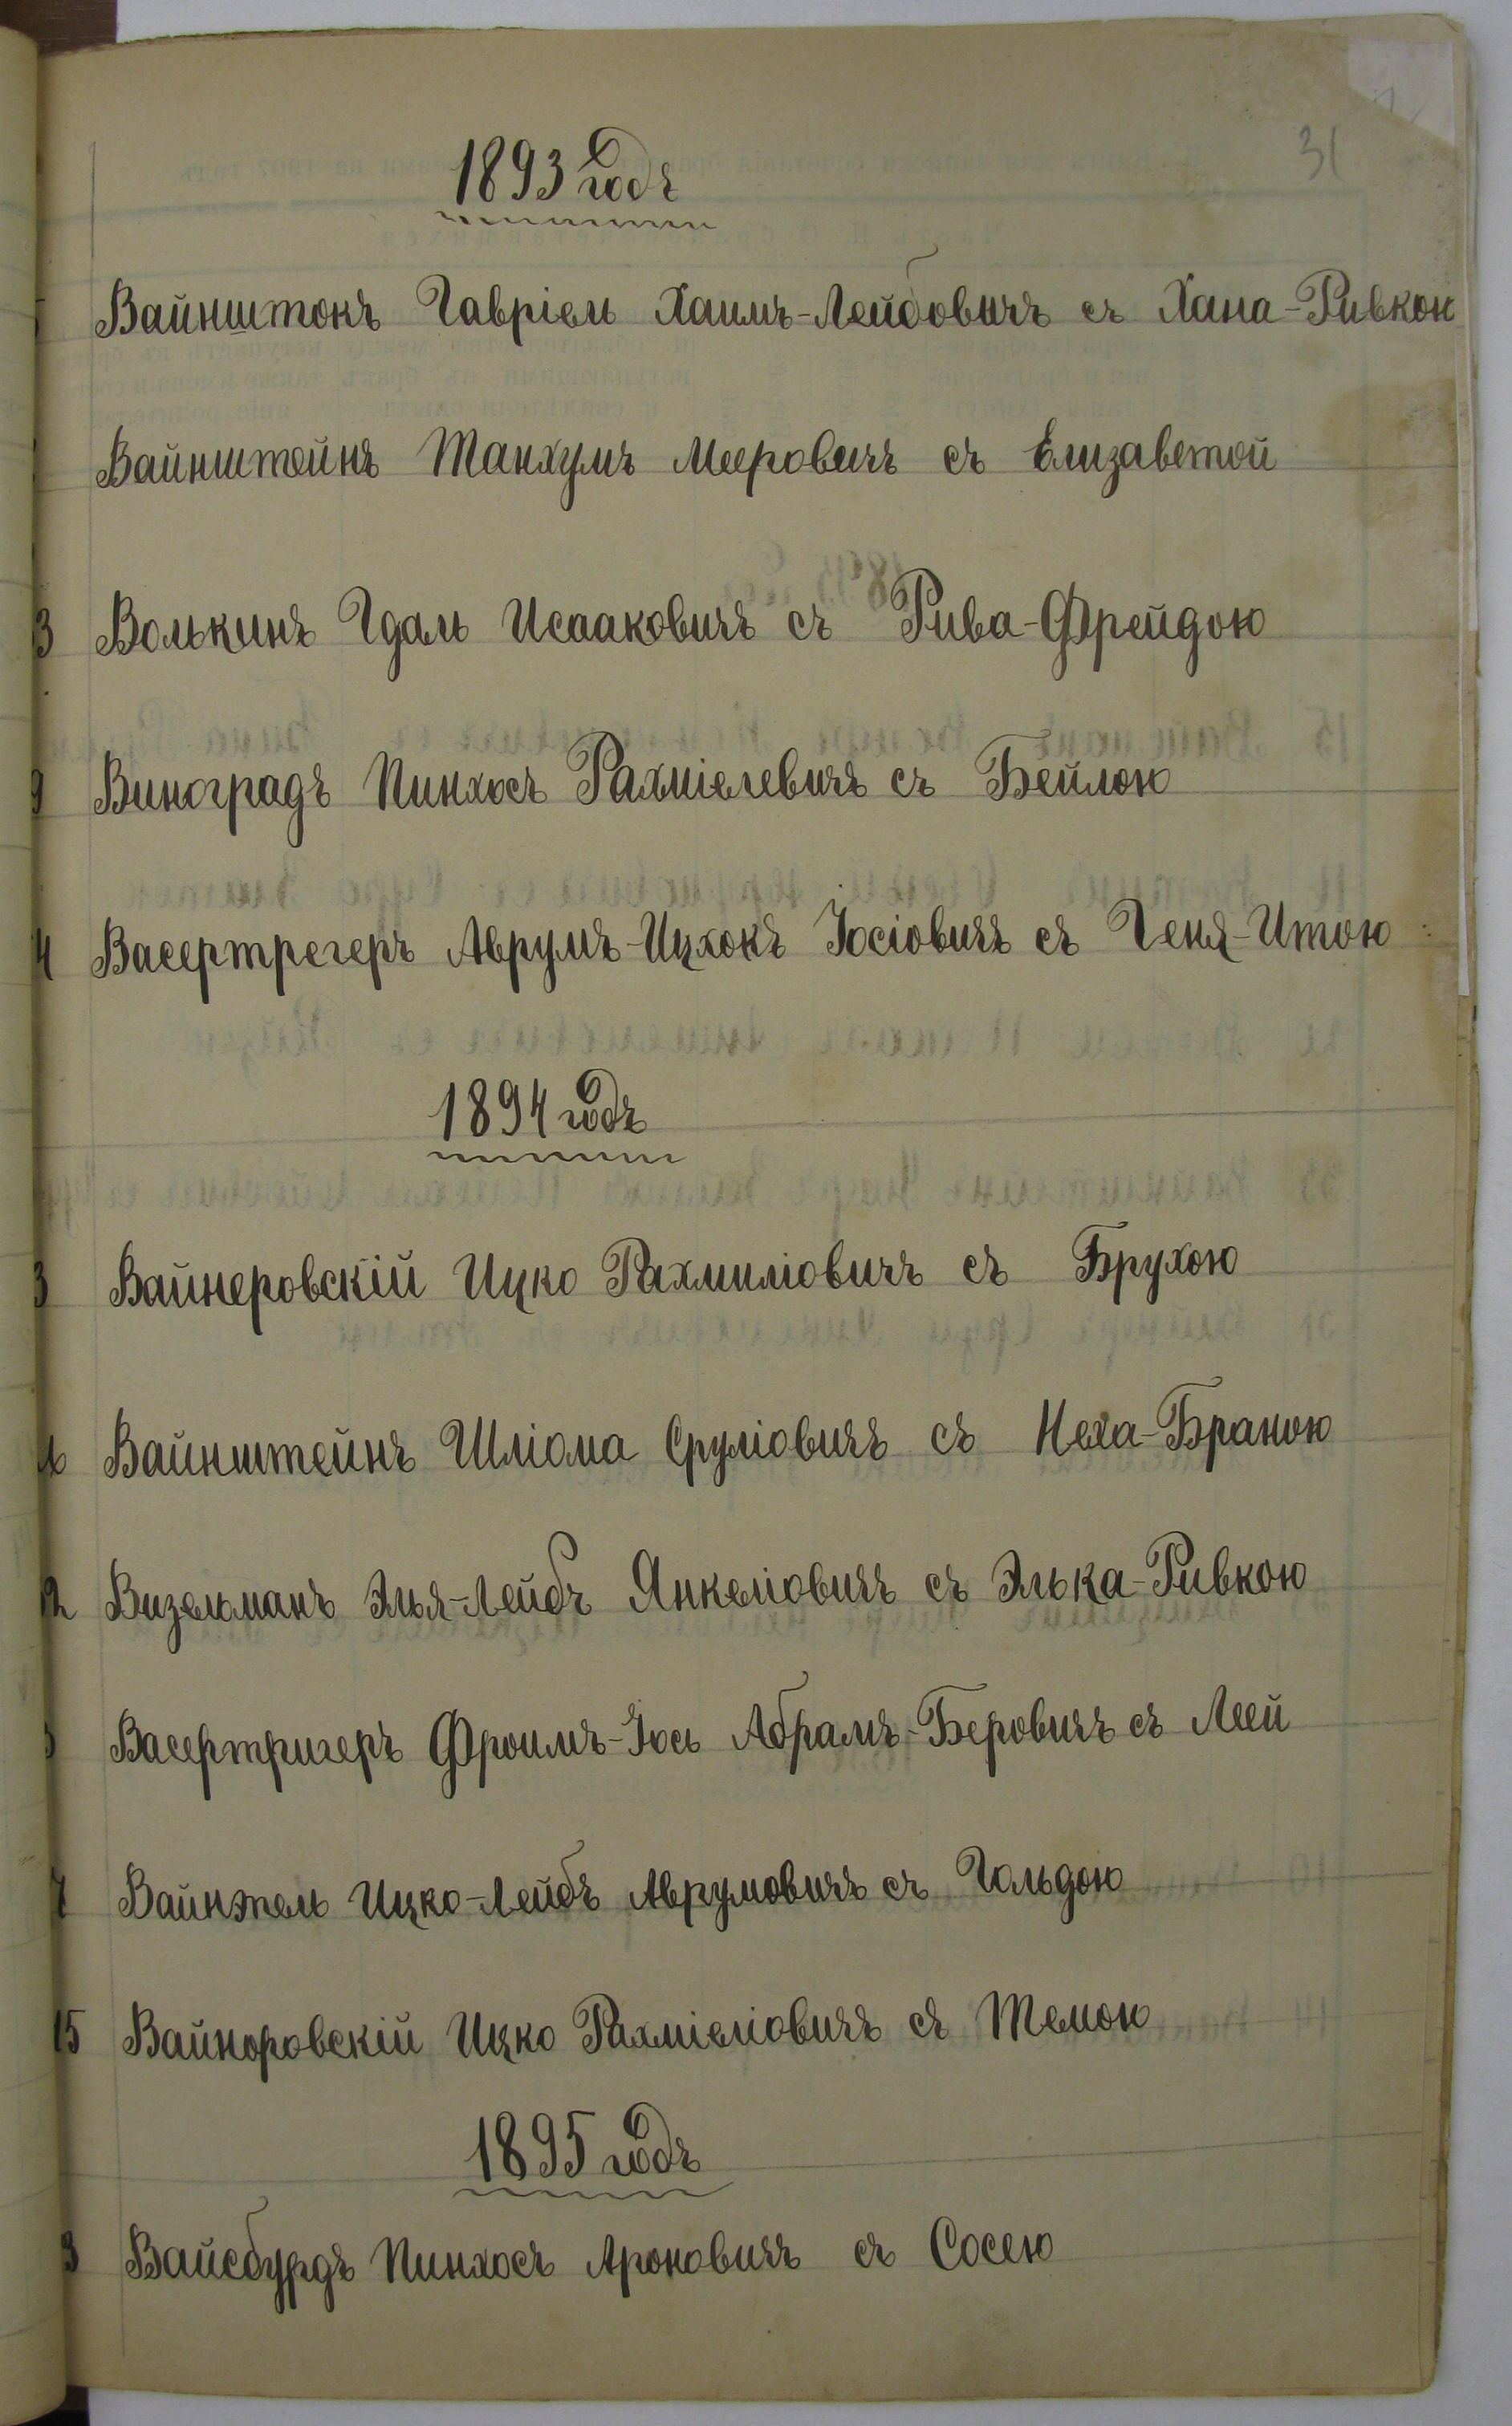 31
1893 годъ
Вайнштокъ Гавріель Хаимъ-Лейбовичъ съ Хана-Ривкою
Вайнштейнъ Танхумъ Мееровичъ съ Елизаветой
3 Волькинъ Гдаль Исааковичъ съ Рива-Фрейдою
9 Виноградъ Пинхосъ Рахміелевичъ съ Бейлою
4 Васертрегеръ Аврумъ-Ицхокъ Іосіовичъ съ Геня-Итою
1894 годъ
3 Вайнеровскій Ицко Рахмиліовичъ съ Брухою
Вайнштейнъ Шліома Сруліовичъ съ Неха-Браною
12 Визельманъ Элья-Лейбъ Янкеліовичъ съ Элька-Ривкою
Васертригеръ Фроимъ-Іось Абрамъ-Беровичъ съ Леей
7 Вайнтель Ицко-Лейбъ Аврумовичъ съ Гольдою
15 Вайноровскій Ицко Рахміеліовичъ съ Темою
1895 годъ
3 Вайсбурдъ Пинхосъ Ароновичъ съ Сосею